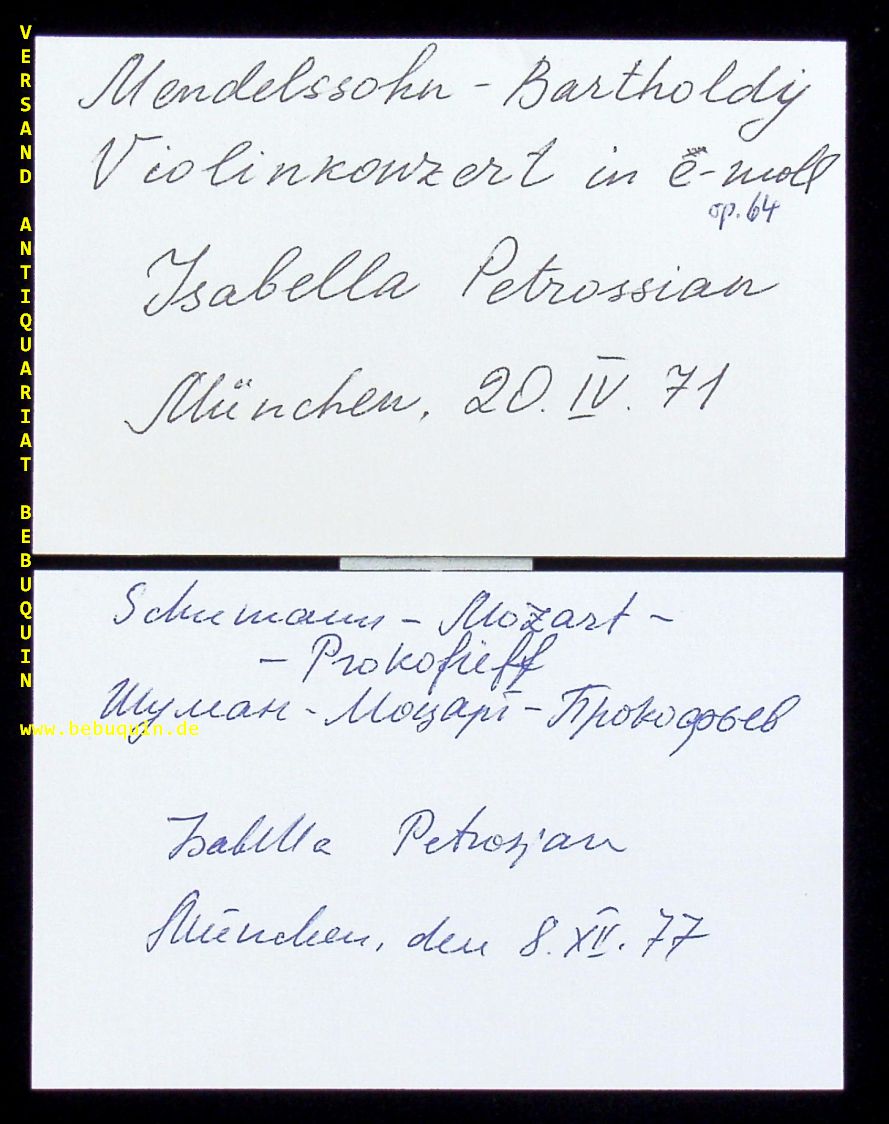 VERSAND ANTIQUARIAT BEBUQUIN
Mendelssohn - Bartholdy
Violinkonzert in e-moll
op. 64
Isabella Petrossian
München, 20. IV. 71
Schumann - Mozart -
- Prokofieff
Шуман - Моцарт - Прокофьев
www.bebuquin.de
Isabella Petrosjan
München, den 8. XII. 77